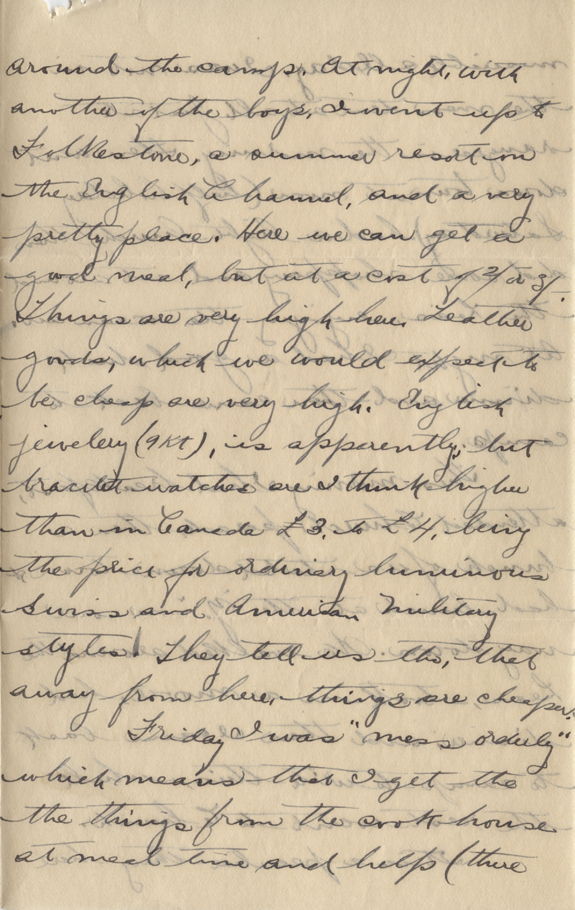 around the camp. At night, with
another of the boys, I went up to
Folkestone, a summer resort on
the English Channel, and a very
pretty place. Here we can get a
good meal, but at a cost of 2/ or 3/.
Things are very high here. Leather
goods, which we would expect to
be cheap are very high. English
jewelery (9Kt), is apparently, but
bracelet watches are I think higher
than in Canada £3. to £4. being
the price for ordinary luminous
Swiss and American military
styles! They tell us tho, that
away from here, things are cheaper.
Friday I was "mess orderly"
which means that I get the
the things from the cook house
at meal time and help (there